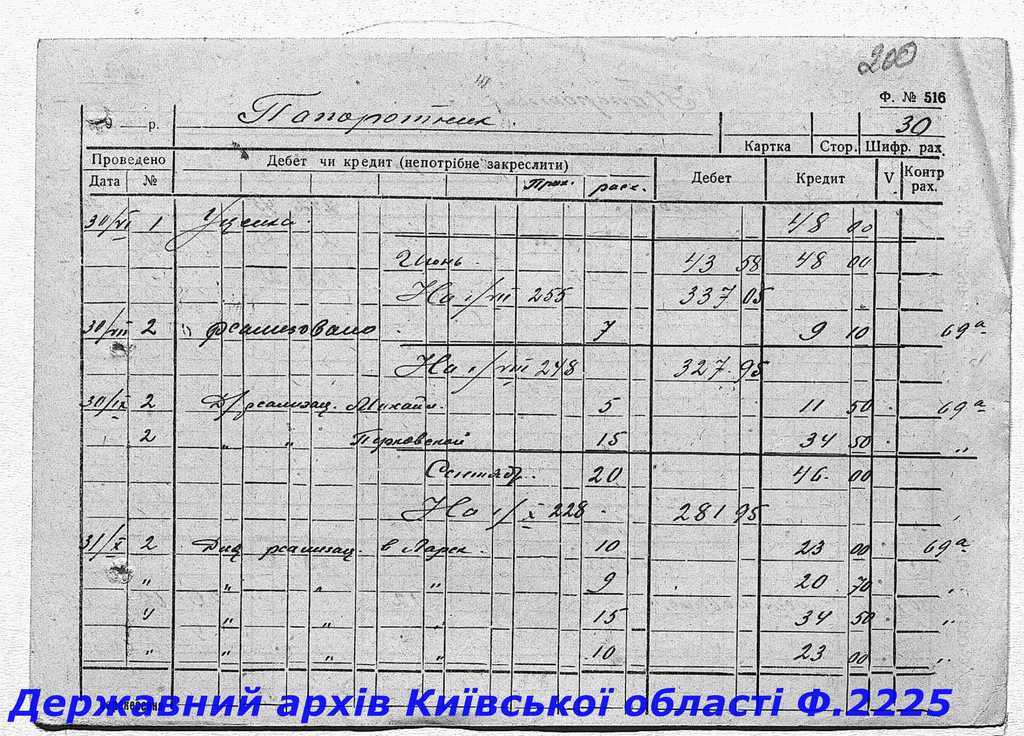 200
Ф. № 516
9 р. Папоротник. 30
Картка Стор. Шифр. рах.
Проведено Дебет чи кредит (непотрібне закреслити) Дебет Кредит V Контр рах.
Дата № Прих. расх.
30/VI 1 Уценка 48 00
Июнь 43 58 48 00
На 1/VII 255 337 05
30/VII 2 реализовано 7 9 10 69а
На 1/VIII 248 327 95
30/IX 2 Д/реализац. Михайл. 5 11 50 69а
2 " " 15 34 50 "
Сентябр. 20 46 00
На 1/X 228 281 95
31/X 2 реализац. в Ларек 10 23 00 69а
" " " " 9 20 70 "
" " " " 15 34 50 "
" " " " 10 23 00 "
Державний архів Київської області Ф.2225